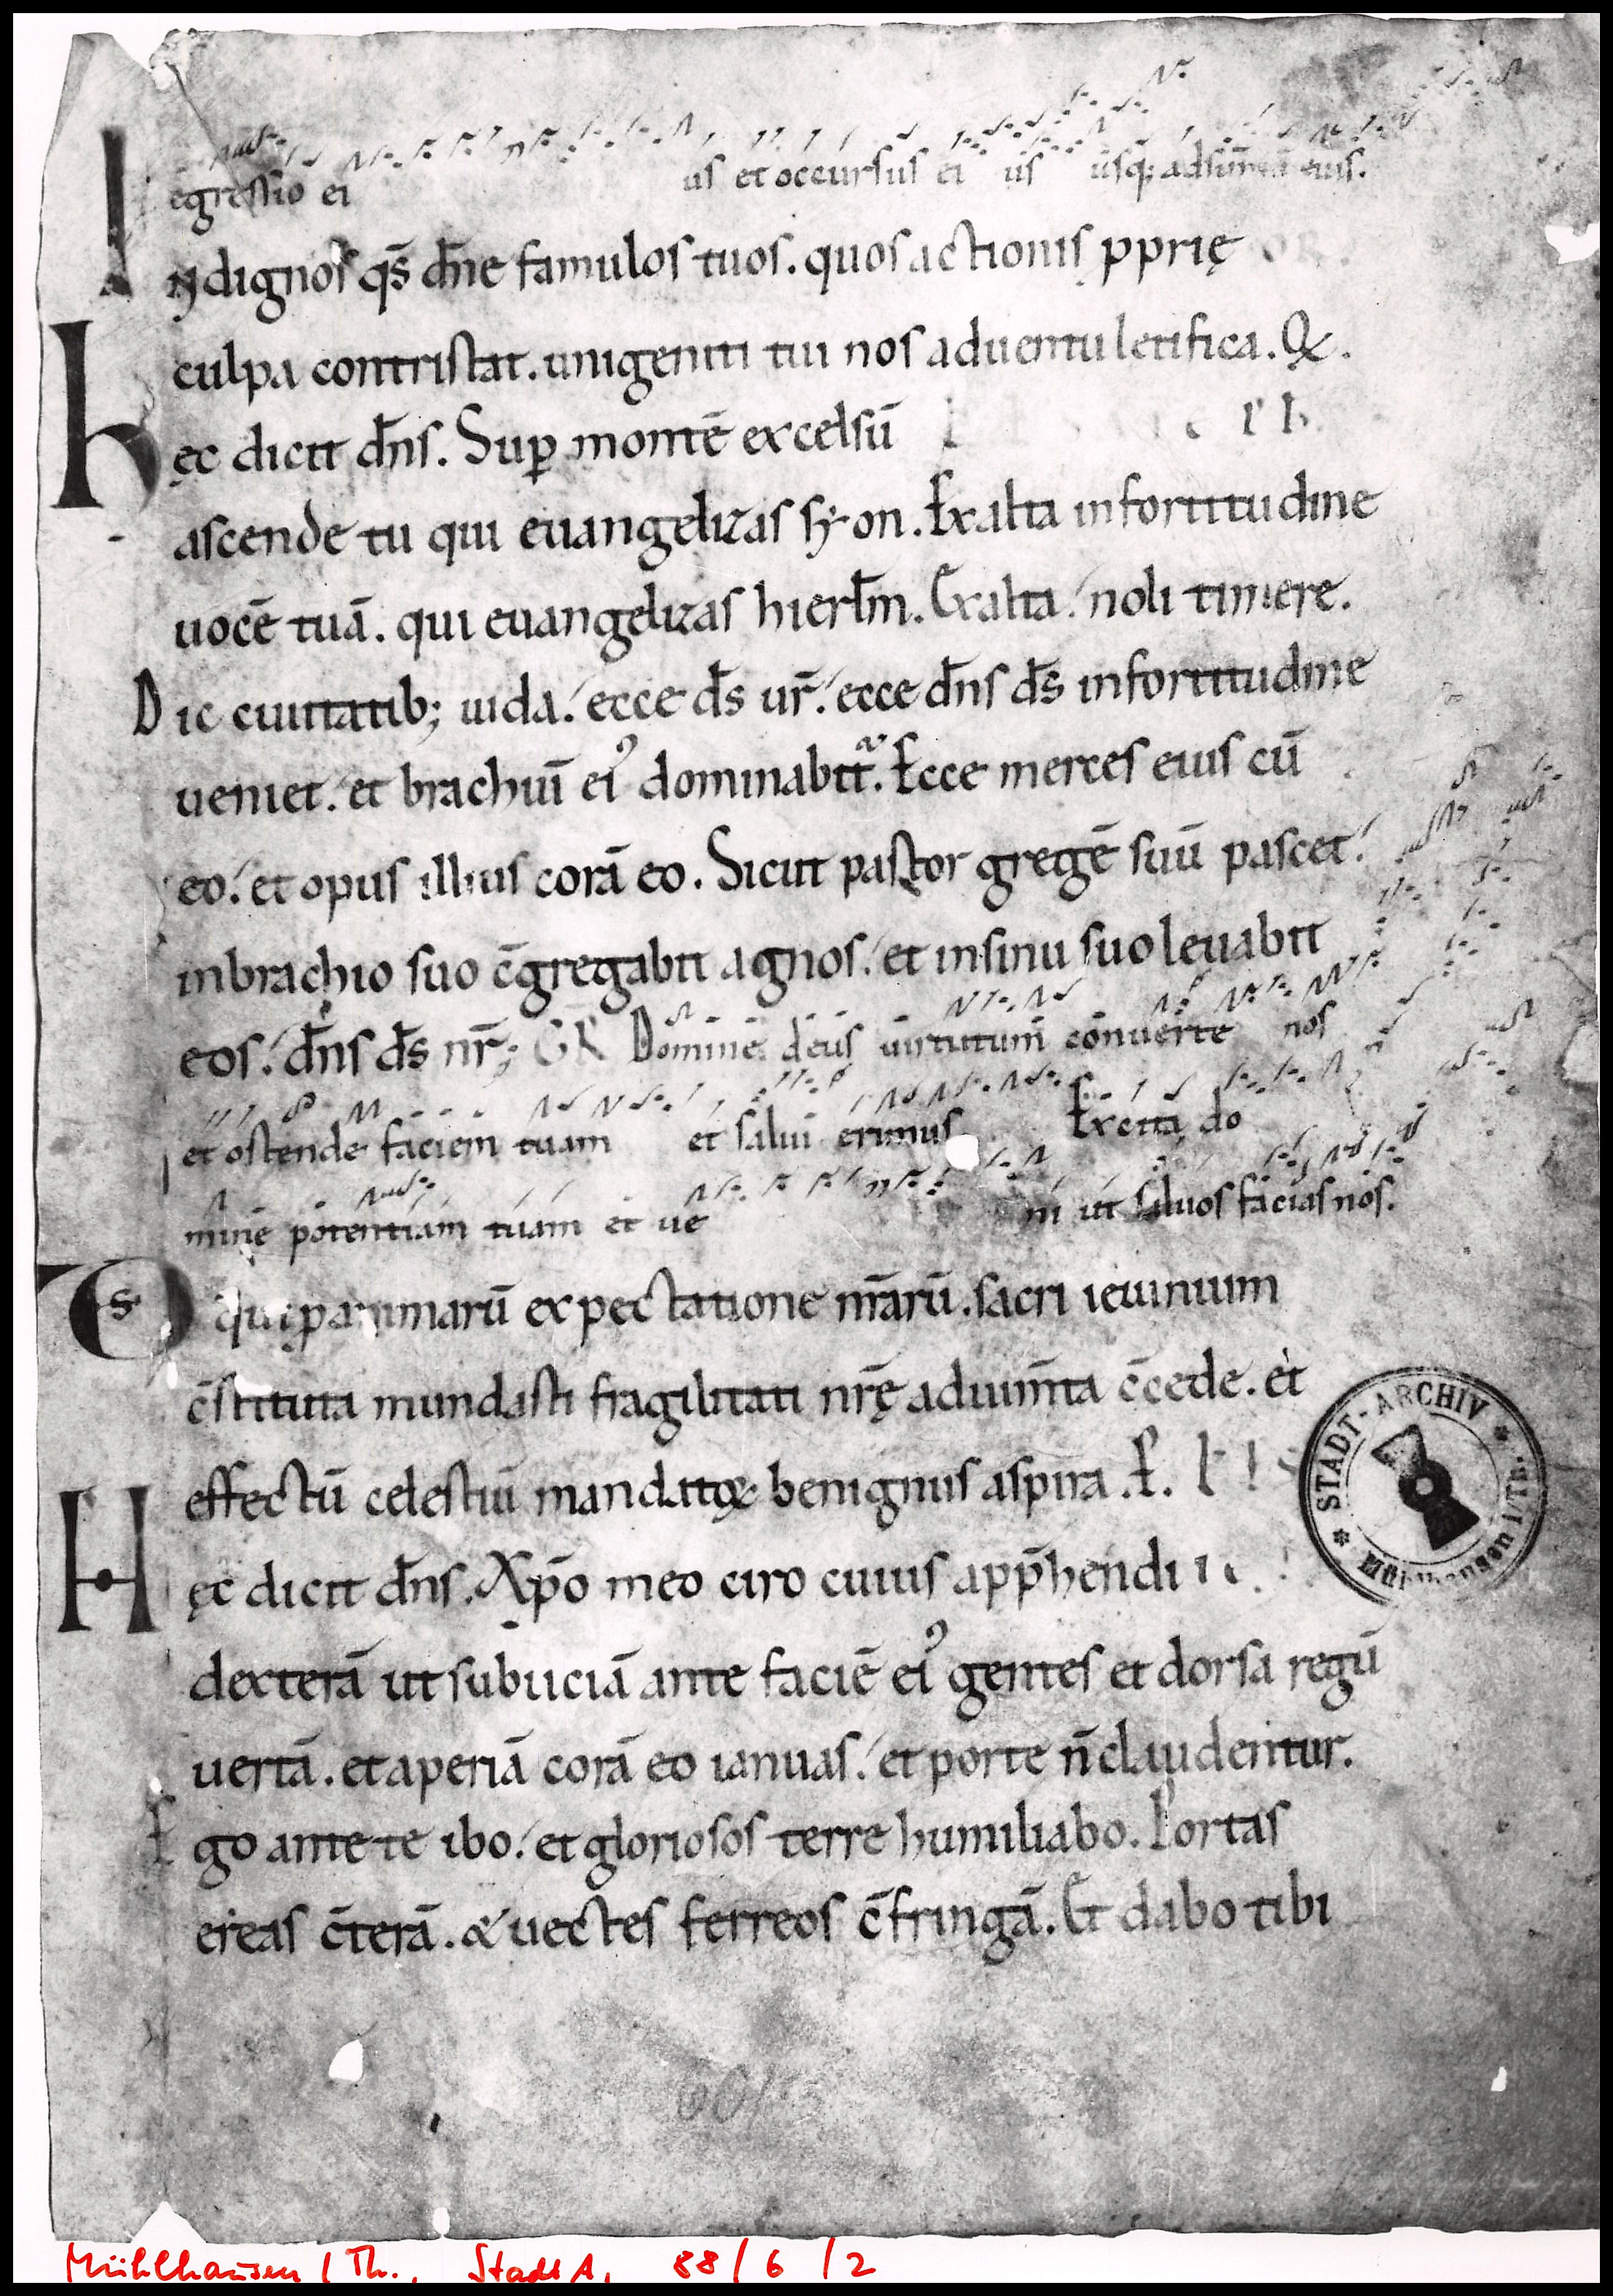 egressio ei us et occursus ei us usq; ad sūmū eius.
Indignos qs̄ dn̄e famulos tuos. quos actionis pprię OR.
culpa contristat. unigeniti tui nos aduentu letifica. Q.
Hęc dicit dn̄s. Sup montē excelsū
ascende tu qui euangelizas syon. Exalta in fortitudine
uocē tuā. qui euangelizas hierl̄m. Exalta. noli timere.
Dic ciuitatib; iuda. ecce ds̄ ur̄. ecce dn̄s ds̄ in fortitudine
ueniet. et brachiū ei᾽ dominabit᷑. Ecce merces eius cū
eo. et opus illius corā eo. Sicut pastor gregē suū pascet.
in brachio suo c̄gregabit agnos. et in sinu suo leuabit
eos. dn̄s ds̄ nr̄; GR Domine deus uirtutum conuerte nos
et ostende faciem tuam et salui erimus Excita do
mine potentiam tuam et ue ni ut saluos facias nos.
Ds qui p animarū expectatione nr̄arū. sacri ieiunium
c̄stituta mundasti fragilitati nr̄ę adium̄ta c̄cede. et
effectū celestiū mandatoꝝ benignus aspira. E.
Hęc dicit dn̄s. Xp̄o meo ciro cuius app̄hendi
dexterā ut subiiciā ante faciē ei᾽ gentes et dorsa regū
uertā. et aperiā corā eo ianuas. et porte n̄ claudentur.
Ego ante te ibo. et gloriosos terre humiliabo. Portas
ereas c̄terā. & uectes ferreos c̄fringā. Et dabo tibi
STADT-ARCHIV * Mühlhausen i/Th. *
Mühlhausen / Th., StadtA, 88/6/2